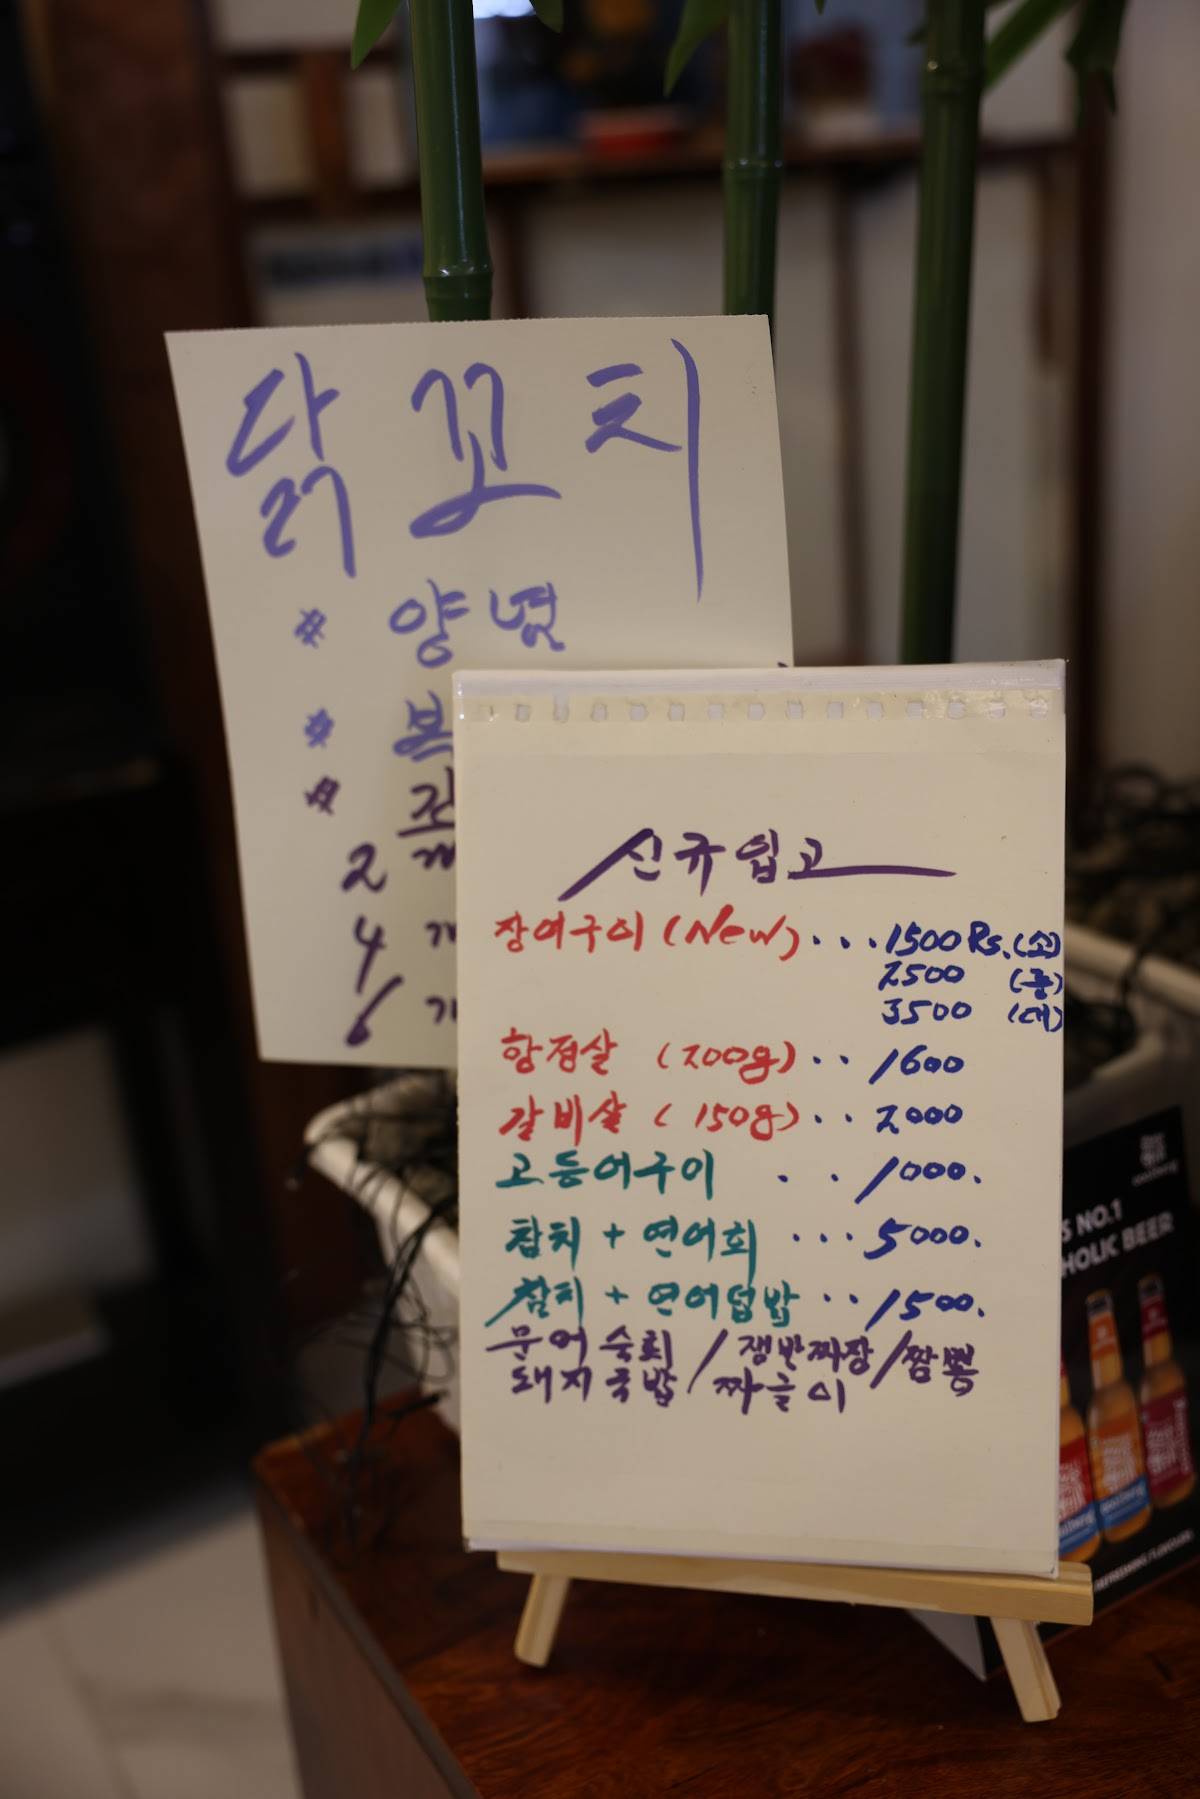 닭꼬치
# 양념
#
#
2
4
6
신규입고
장어구이 (New) ... 1500 Rs. (소)
2500 (중)
3500 (대)
항정살 (200g) .. 1600
갈비살 (150g) .. 2000
고등어구이 .. 1000.
참치 + 연어회 ... 5000.
참치 + 연어덮밥 .. 1500.
문어숙회 / 쟁반짜장 / 짬뽕
돼지국밥 / 짜글이
S NO.1
HOLIC BEER
REFRESHING FLAVOURS